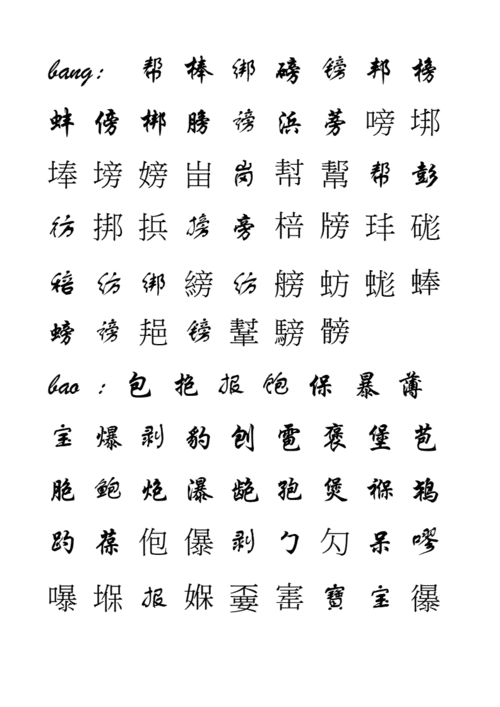 bang: 帮 棒 绑 磅 镑 邦 榜
蚌 傍 梆 膀 谤 浜 蒡 嗙 垹
埲 塝 嫎 峀 崗 幇 幫 帮 彭
彷 挷 捠 搒 旁 棓 牓 玤 硥
稖 纺 绑 縍 纺 艕 蚄 蛖 蜯
螃 谤 邫 镑 鞤 騯 髈
bao : 包 抱 报 饱 保 暴 薄
宝 爆 剥 豹 刨 雹 褒 堡 苞
胞 鲍 炮 瀑 龅 孢 煲 褓 鸨
趵 葆 佨 儤 剥 勹 勽 呆 嘐
嚗 堢 报 媬 嫑 寚 寶 宝 忁